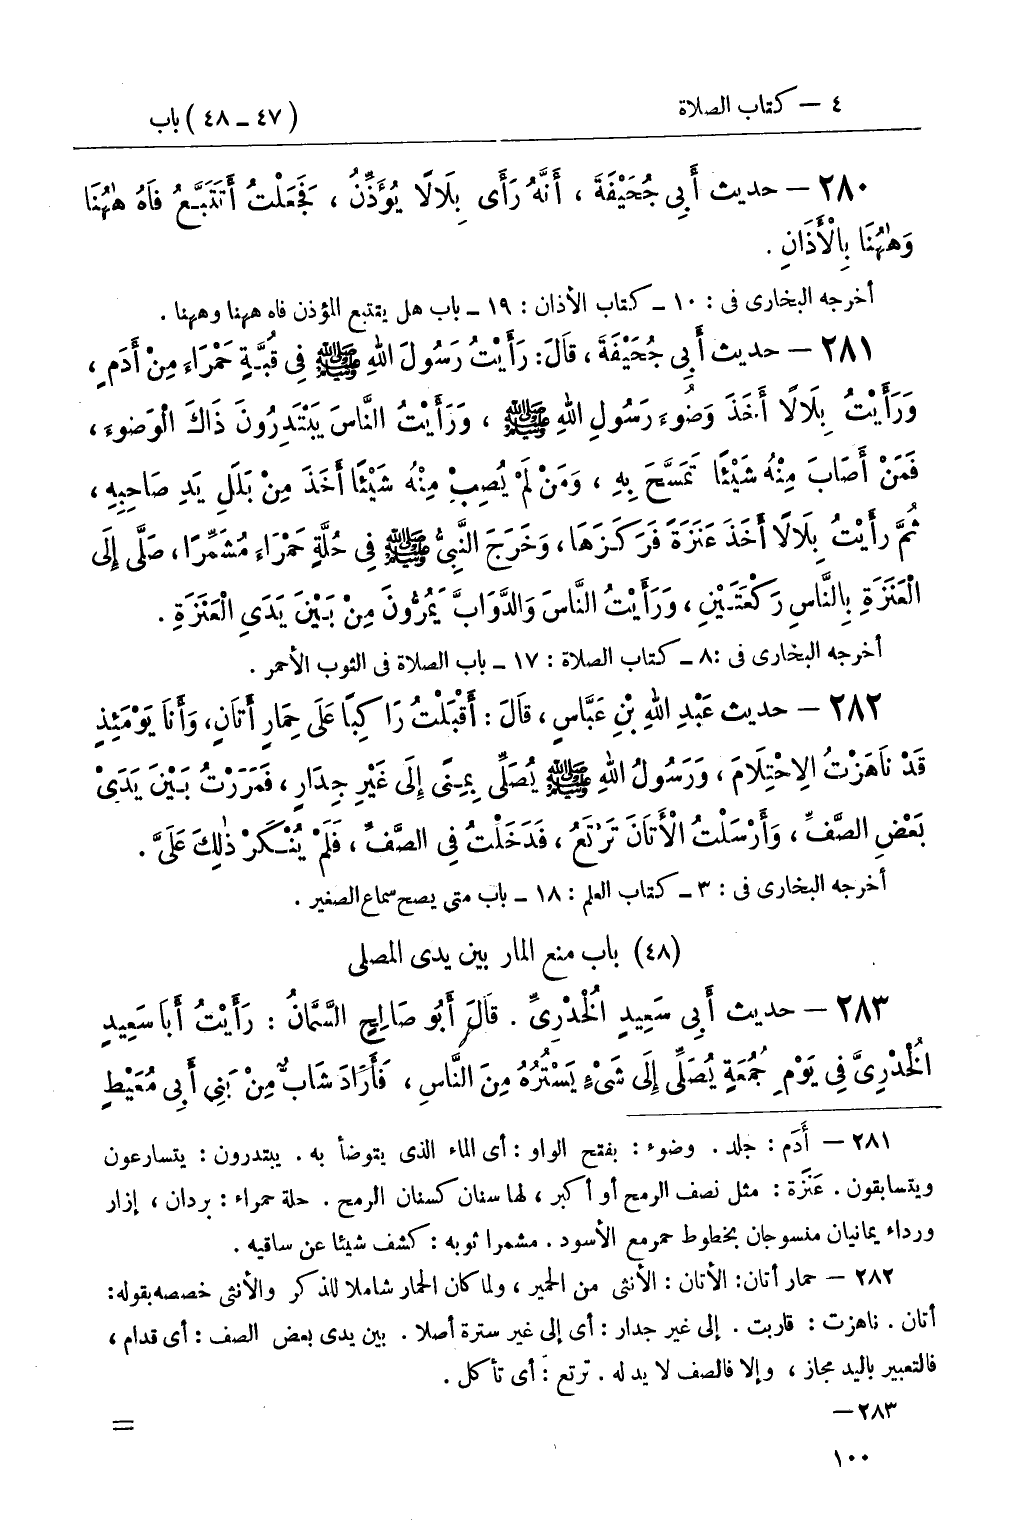 ٤ — كتاب الصلاة
(٤٧ ـ ٤٨) باب
٢٨٠ — حديث أَبِي جُحَيْفَةَ ، أَنَّهُ رَأَى بِلَالًا يُؤَذِّنُ ، فَجَعَلْتُ أَتَتَبَّعُ فَاهُ هٰهُنَا
وَهٰهُنَا بِالْأَذَانِ .
أخرجه البخارى فى : ١٠ ـ كتاب الأذان : ١٩ ـ باب هل يتتبع المؤذن فاه ههنا وههنا .
٢٨١ — حديث أَبِي جُحَيْفَةَ ، قَالَ: رَأَيْتُ رَسُولَ اللهِ ﷺ فِي قُبَّةٍ حَمْرَاءَ مِنْ أَدَمٍ ،
وَرَأَيْتُ بِلَالًا أَخَذَ وَضُوءَ رَسُولِ اللهِ ﷺ ، وَرَأَيْتُ النَّاسَ يَبْتَدِرُونَ ذَاكَ الْوَضوءَ ،
فَمَنْ أَصَابَ مِنْهُ شَيْئًا تَمَسَّحَ بِهِ ، وَمَنْ لَمْ يُصِبْ مِنْهُ شَيْئًا أَخَذَ مِنْ بَلَلِ يَدِ صَاحِبِهِ ،
ثُمَّ رأَيْتُ بِلَالًا أَخَذَ عَنَزَةً فَرَكَزَهَا ، وَخَرَجَ النَّبِيُّ ﷺ فِي حُلَّةٍ حَمْرَاءَ مُشَمِّرًا ، صَلَّى إِلَى
الْعَنَزَةِ بِالنَّاسِ رَكْعَتَيْنِ ، وَرَأَيْتُ النَّاسَ وَالدَّوَابَّ يَمُرُّونَ مِنْ بَيْنَ يَدَيِ الْعَنَزَةِ .
أخرجه البخارى فى :٨ ـ كتاب الصلاة : ١٧ ـ باب الصلاة فى الثوب الأحمر .
٢٨٢ — حديث عَبْدِ اللهِ بْنِ عَبَّاسٍ ، قَالَ : أَقْبَلْتُ رَاكِبًا عَلَى حِمَارٍ أَتَانٍ، وَأَنَا يَوْمَئِذٍ
قَدْ نَاهَزْتُ الِاحْتِلَامَ ، وَرَسُولُ اللهِ ﷺ يُصَلِّي بِمِنًى إِلَى غَيْرِ جِدَارٍ ، فَمَرَرْتُ بَيْنَ يَدَيْ
بَعْضِ الصَّفِّ ، وَأَرْسَلْتُ الْأَتَانَ تَرْتَعُ ، فَدَخَلْتُ فِي الصَّفِّ ، فَلَمْ يُنْكَرْ ذٰلِكَ عَلَيَّ .
أخرجه البخارى فى : ٣ ـ كتاب العلم : ١٨ ـ باب متى يصح سماع الصغير .
(٤٨) باب منع المار بين يدى المصلى
٢٨٣ — حديث أَبِي سَعِيدٍ الْخُدْرِيِّ . قَالَ أَبُو صَالِحٍ السَّمَّانُ : رَأَيْتُ أَبَا سَعِيدٍ
الْخُدْرِيَّ فِي يَوْمِ جُمُعَةٍ يُصَلِّي إِلَى شَيْءٍ يَسْتُرُهُ مِنَ النَّاسِ ، فَأَرَادَ شَابٌّ مِنْ بَنِي أَبِي مُعَيْطٍ
٢٨١ — أَدَم : جلد . وضوء : بفتح الواو : أى الماء الذى يتوضأ به . يبتدرون : يتسارعون
ويتسابقون . عَنَزَة : مثل نصف الرمح أو أكبر ، لها سنان كسنان الرمح . حلة حمراء : بردان ، إزار
ورداء يمانيان منسوجان بخطوط حمر مع الأسود . مشمرا ثوبه : كشف شيئا عن ساقيه .
٢٨٢ — حمار أتان: الأتان : الأنثى من الحمير ، ولما كان الحمار شاملا للذكر والأنثى خصصه بقوله:
أتان . ناهزت : قاربت . إلى غير جدار : أى إلى غير سترة أصلا . بين يدى بعض الصف : أى قدام ،
فالتعبير باليد مجاز ، وإلا فالصف لا يد له . ترتع : أى تأكل .
٢٨٣—
=
١٠٠